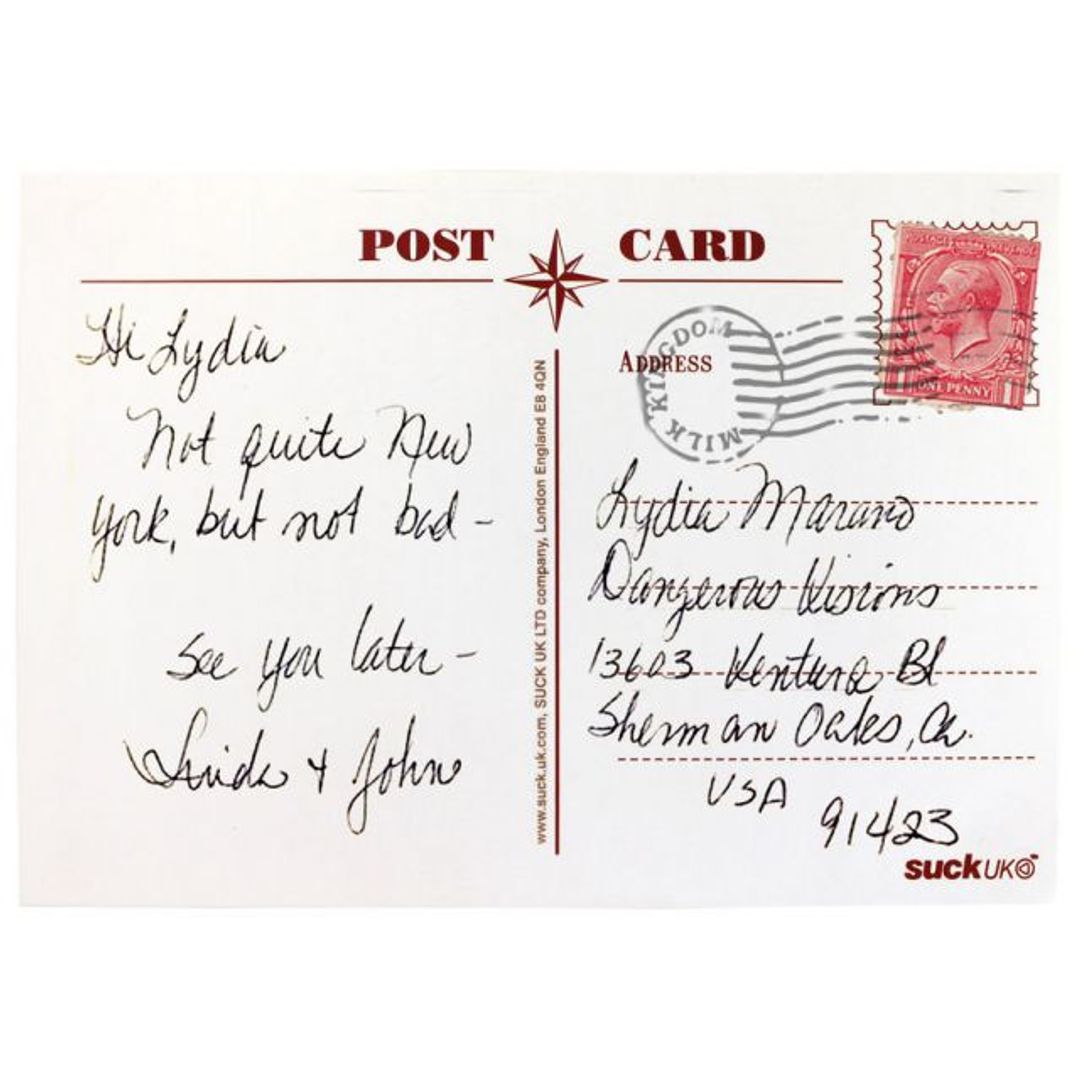 POST CARD
Hi Lydia
Not quite New
York, but not bad -
See you later -
Linda + John
www.suck.uk.com, SUCK UK LTD company, London England E8 4QN
ADDRESS
MILK KINGDOM
POSTAGE REVENUE
ONE PENNY 1
Lydia Marano
Dangerous Visions
13603 Ventura Bl
Sherman Oaks, Ca.
USA
91423
suck UK